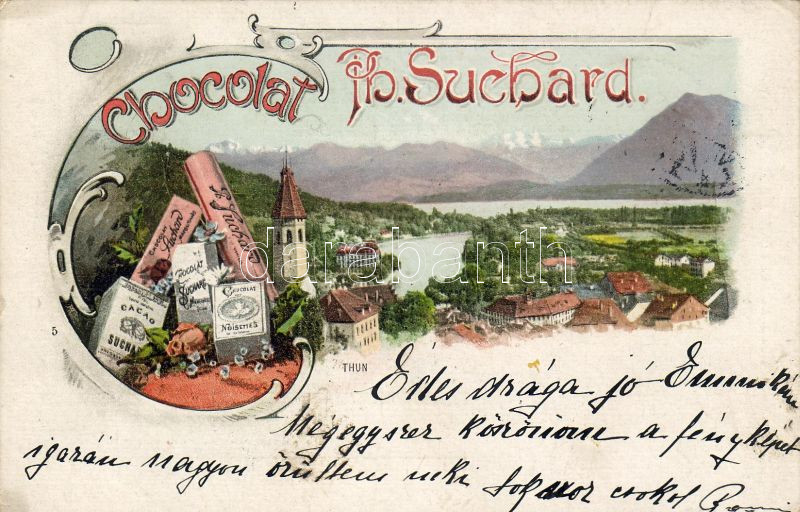 Chocolat Ph. Suchard.
CHOCOLAT
Suchard
Suchard
CHOCOLAT
SUCHARD
CACAO
SUCHARD
CHOCOLAT
NOISETTES
darabanth
5
THUN
Édes drága jó Emmikém
Mégegyszer köszönöm a fényképet
igazán nagyon örültem neki sokszor csókol